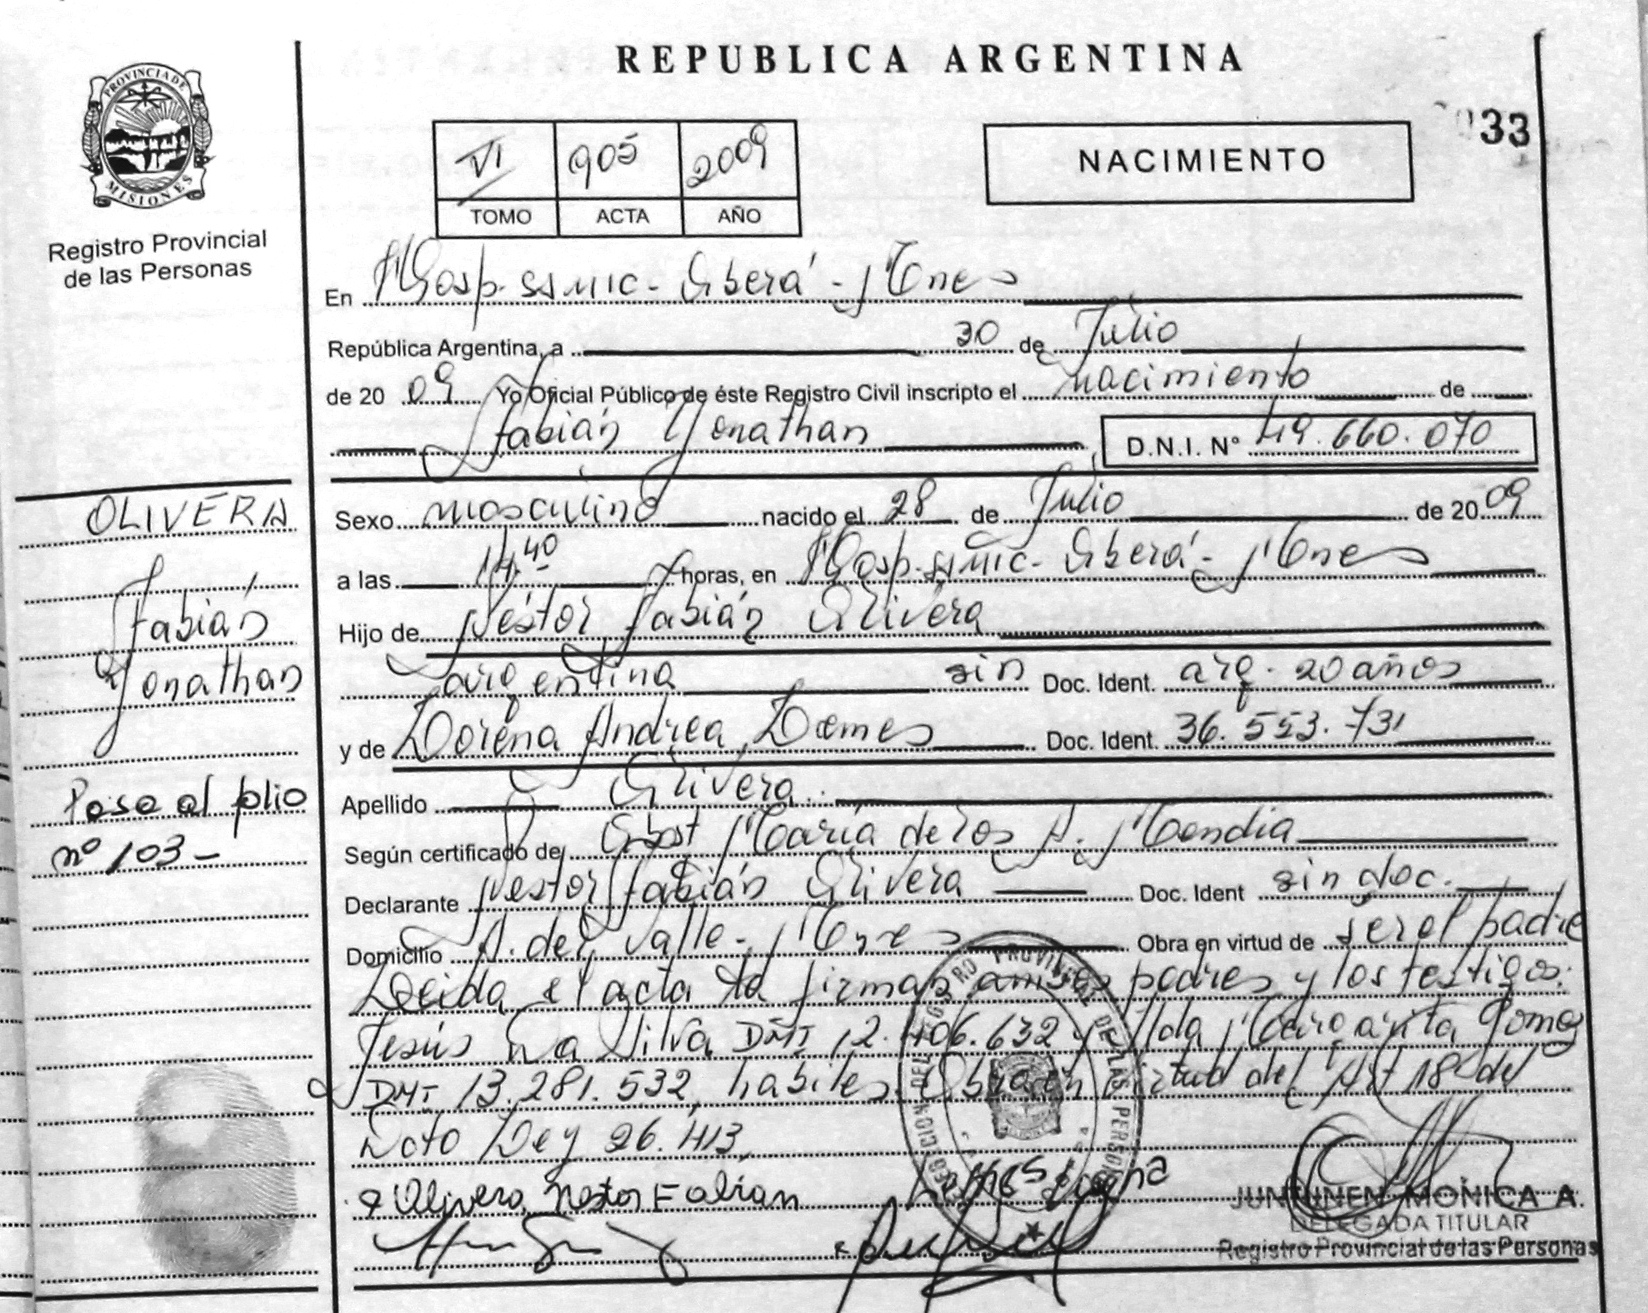 REPUBLICA ARGENTINA
PROVINCIA DE
MISIONES
Registro Provincial
de las Personas
VI 905 2009
TOMO ACTA AÑO
NACIMIENTO
033
En Hosp. SSMIC - Oberá - Mnes
República Argentina, a 30 de Julio
de 2009 Yo Oficial Público de éste Registro Civil inscripto el nacimiento de
Fabián Yonathan D.N.I. Nº 49.660.070
OLIVERA
Fabián
Yonathan
Pase al folio
nº 103-
Sexo masculino nacido el 28 de Julio de 2009
a las 14,40 horas, en Hosp. SSMIC - Oberá - Mnes
Hijo de Néstor Fabián Olivera
argentina sin Doc. Ident. arg. 20 años
y de Lorena Andrea Lemes Doc. Ident. 36.553.731
Apellido Olivera
Según certificado de Obst María de los A. Mendia
Declarante Néstor Fabián Olivera Doc. Ident sin doc.
Domicilio A. del Valle - Mnes Obra en virtud de ser el padre
Leida el acta la firman ambos padres y los testigos:
Jesús Da Silva DNI 12.406.632 y Ilda Margarita Gomez
DNI 13.281.532, habiles. Obra en virtud del Art 18º del
Dcto Ley 26.413,
Olivera, Nestor Fabian
JUNKINEN MONICA A.
DELEGADA TITULAR
Registro Provincial de las Personas